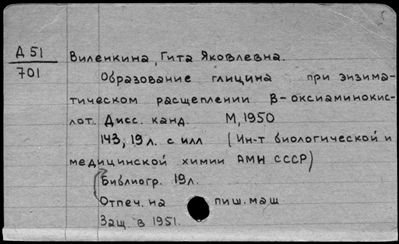 Д 51
701
Виленкина, Гита Яковлевна.
Образование глицина при энзима-
тическом расщеплении β-оксиаминокис-
лот. Дисс. канд. М, 1950
143, 19 л. с илл (Ин-т биологической и
медицинской химии АМН СССР)
Библиогр. 19л.
Отпеч. на пиш. маш
Защ. в 1951.